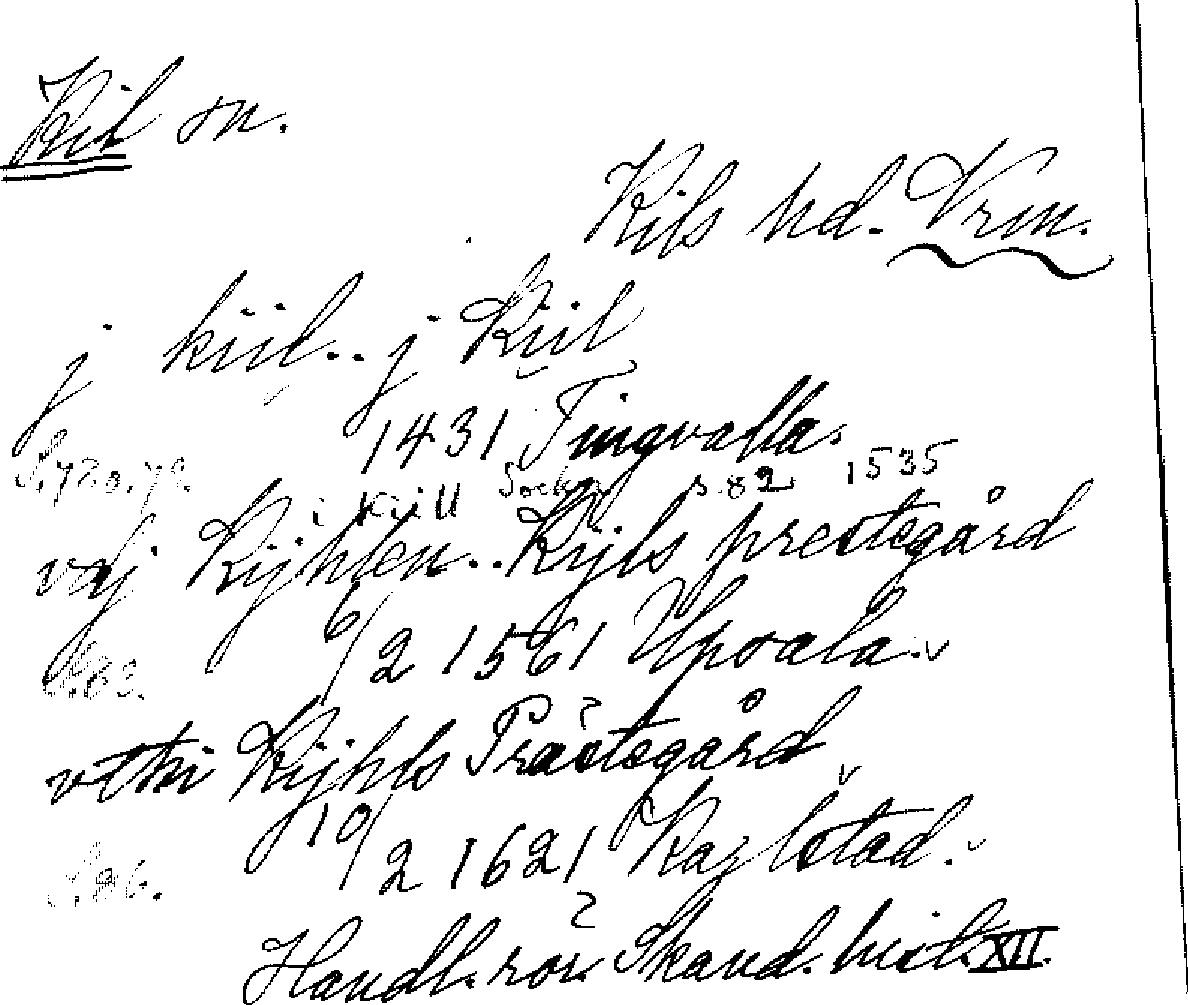 Kil sn.
Kils hd. Vrm.
j kiil.. j Kiil
1431 Tingvalla.
S. 78 o. 79. i Kiill Sockn s. 82 1535
vdj Kijhlen.. Kijls prestegård
6/2 1561 Upsala.
S. 83.
vthi Kijhls Prästegård
10/2 1621 Karlstad.
S. 86.
Handl. rör. Skand. hist. XII.